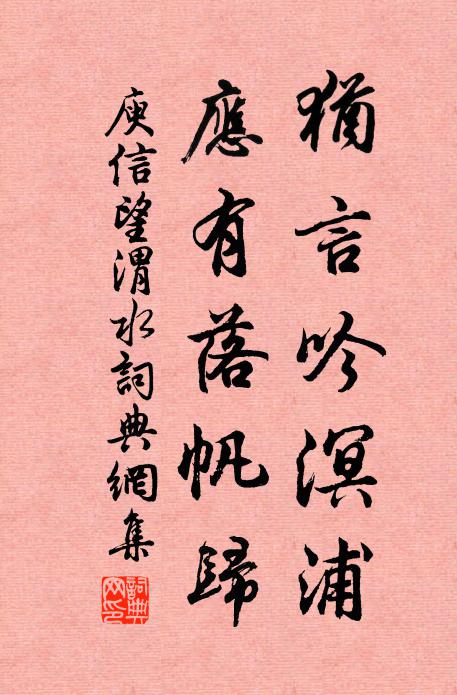 猶言吟溟浦
應有落帆歸
庾信望渭水詞典網集
詞典網印